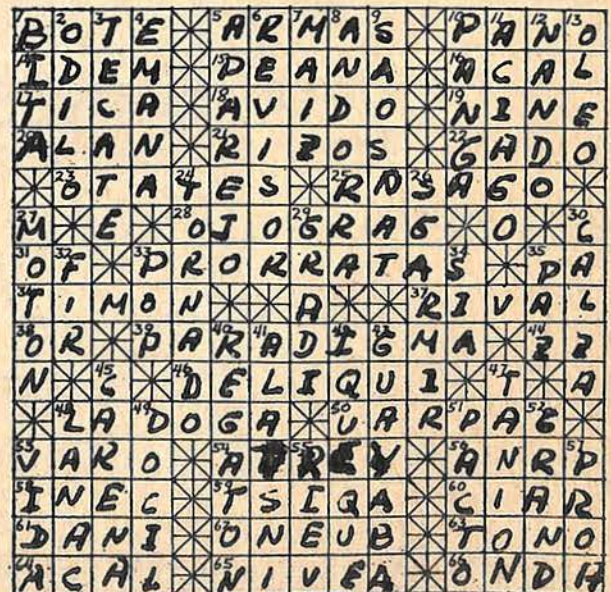 BOTE ARMAS PANO
IDEM PEANA ACAL
TICA AVIDO NINE
ALAN RIZOS GADO
OTATES RNSAGO
M E OJOGRAG O C
OF PRORRATAS PA
TIMON A RIVAL
OR PARADIGMA ZZ
N C DELIQUI T A
LA DOGA UARPAG
VARO ANRP
INEC TSIQA CIAR
DANI ONEUB TONO
ACAL NIVEA ONDH